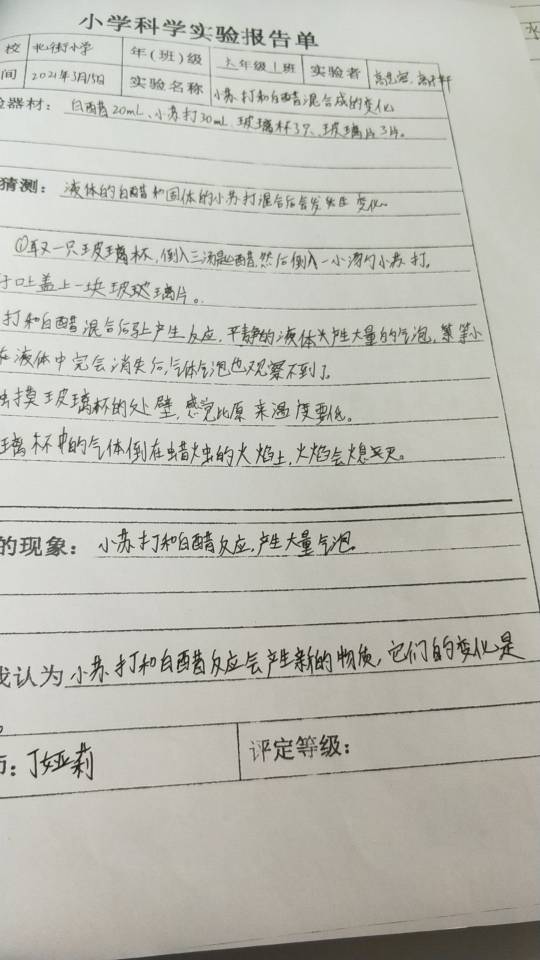 小学科学实验报告单
校 北街小学 年(班)级 六年级1班 实验者
间 2021年3月15日 实验名称 小苏打和白醋混合成的变化
器材: 白醋20mL、小苏打30mL、玻璃杯3个、玻璃片3片。
猜测: 液体的白醋和固体的小苏打混合后会发生变化。
①取一只玻璃杯,倒入三汤匙醋,然后倒入一小汤勺小苏打,
子口上盖上一块玻璃片。
打和白醋混合后马上产生反应,平静的液体产生大量的气泡,等小
在液体中完会消失后,气体气泡也观察不到了。
摸玻璃杯的外壁,感觉比原来温度要低。
璃杯中的气体倒在蜡烛的火焰上,火焰会熄灭。
的现象: 小苏打和白醋反应,产生大量气泡。
我认为小苏打和白醋反应会产生新的物质,它们的变化是
。
师: 丁娅莉 评定等级: